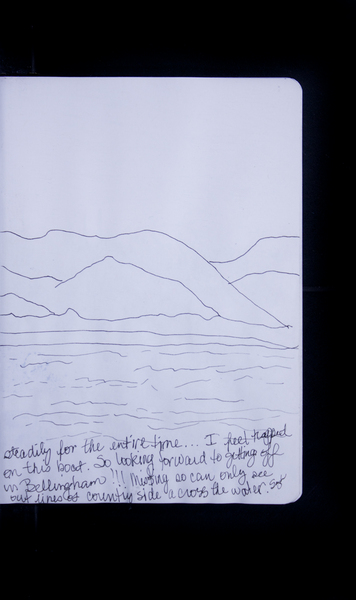 steadily for the entire time... I feel trapped
on this boat. So looking forward to getting off
in Bellingham!!! Misting so can only see
out lines of country side across the water. So